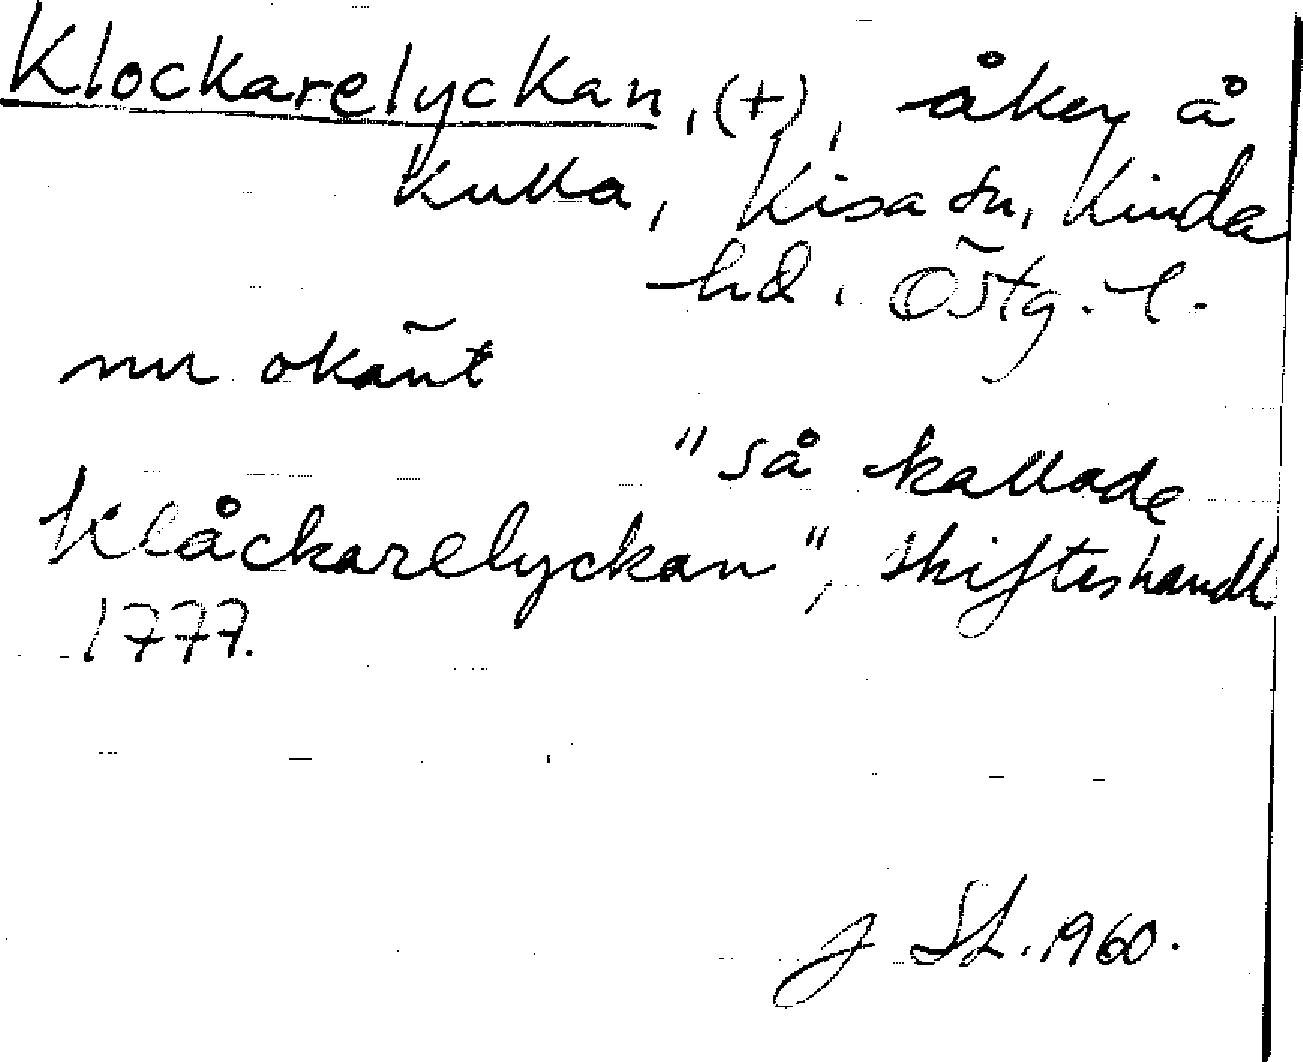 Klockarelyckan, (+), åker å
Kulla, Kisa sn, Kinda
hd. Östg. l.
nu okänt
"så kallade
Klåckarelyckan", skifteshandl.
1777.
J SL. 1960.